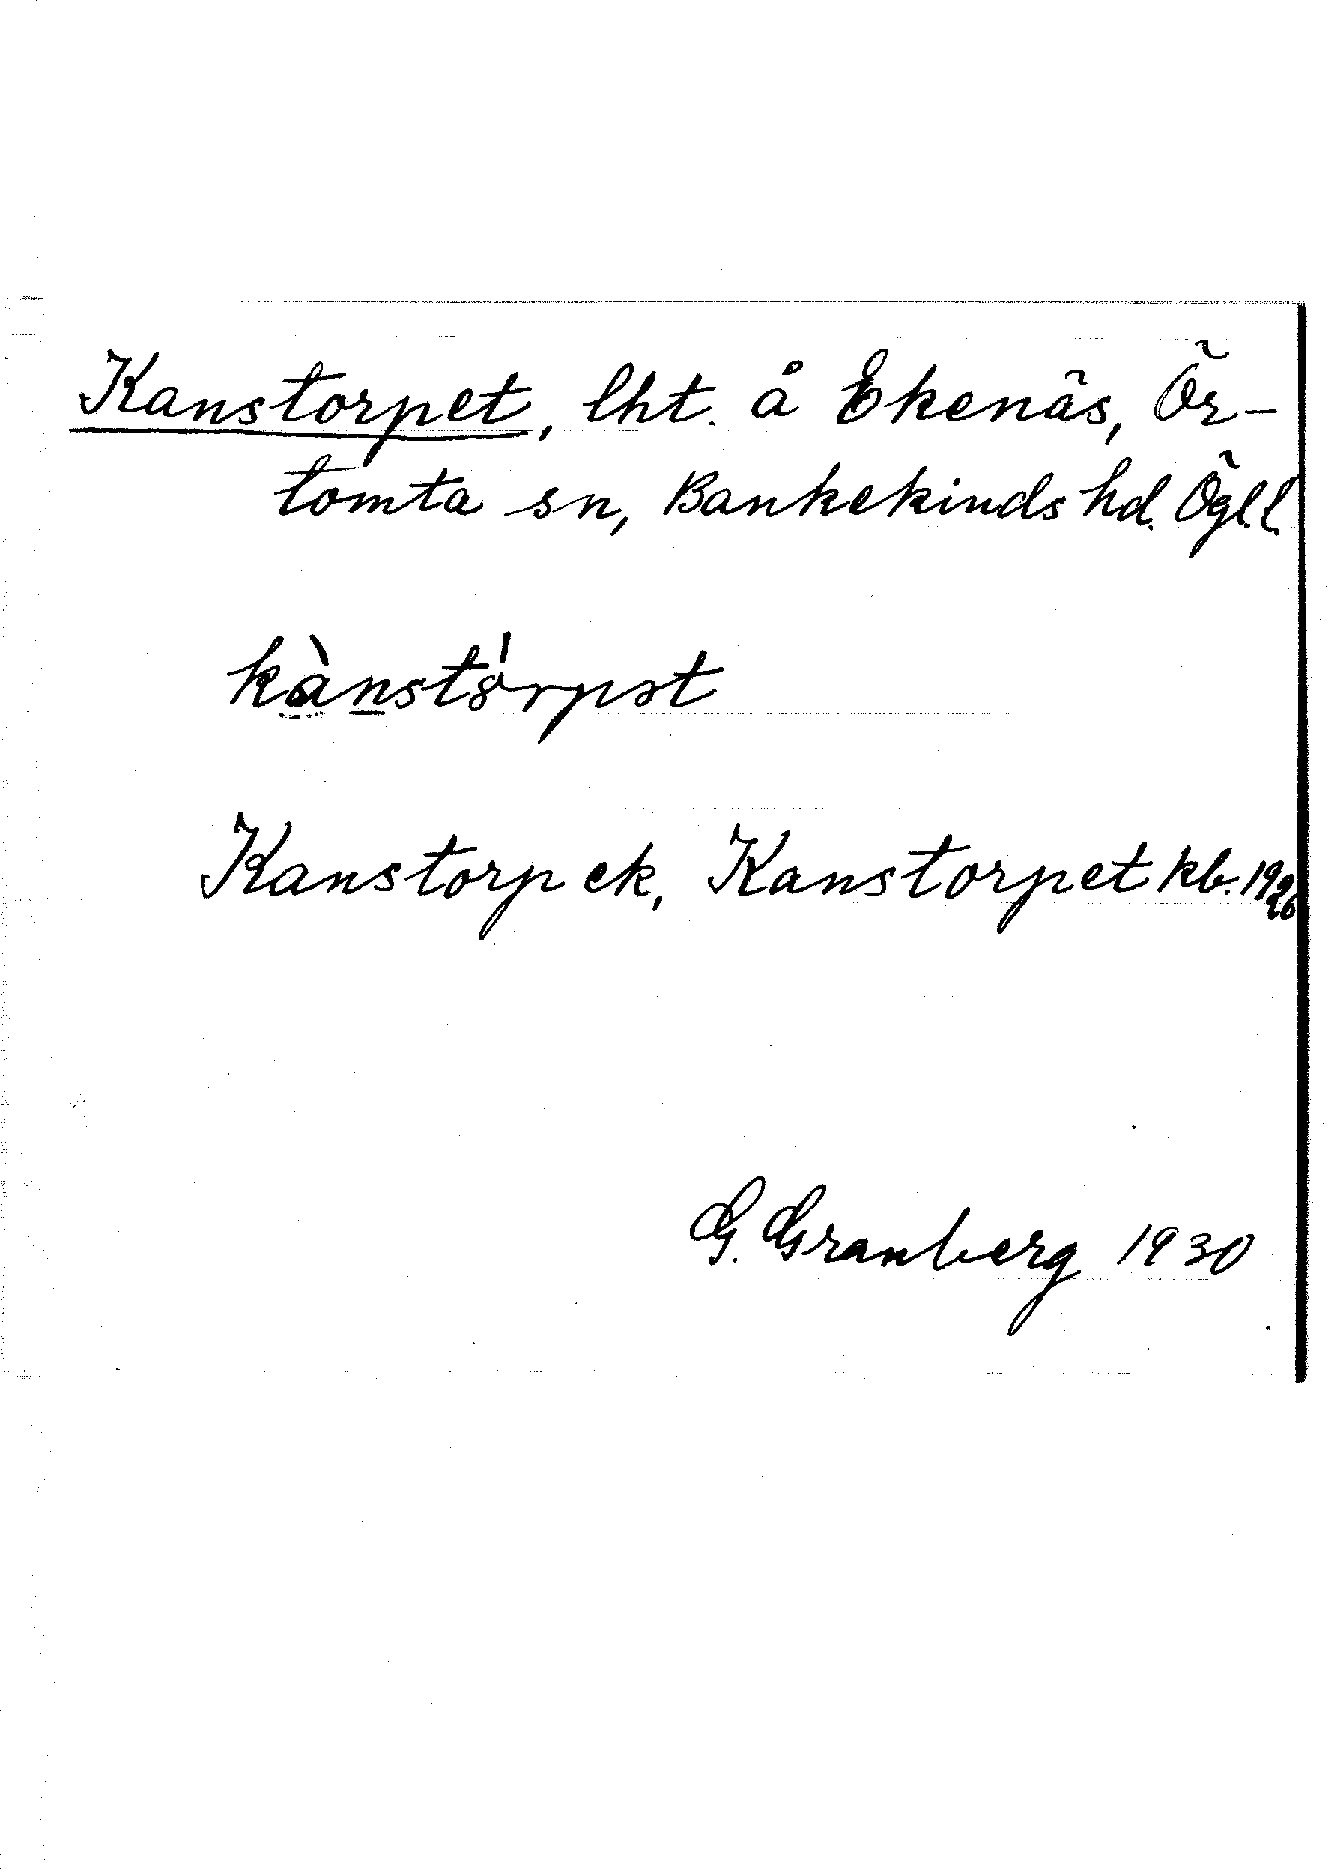 Kanstorpet, lht. å Ekenäs, Ör-
tomta sn, Bankekinds hd. Ögl.l.
kànstȣ́rpət
Kanstorp ek, Kanstorpet kb. 1926
G. Granberg 1930